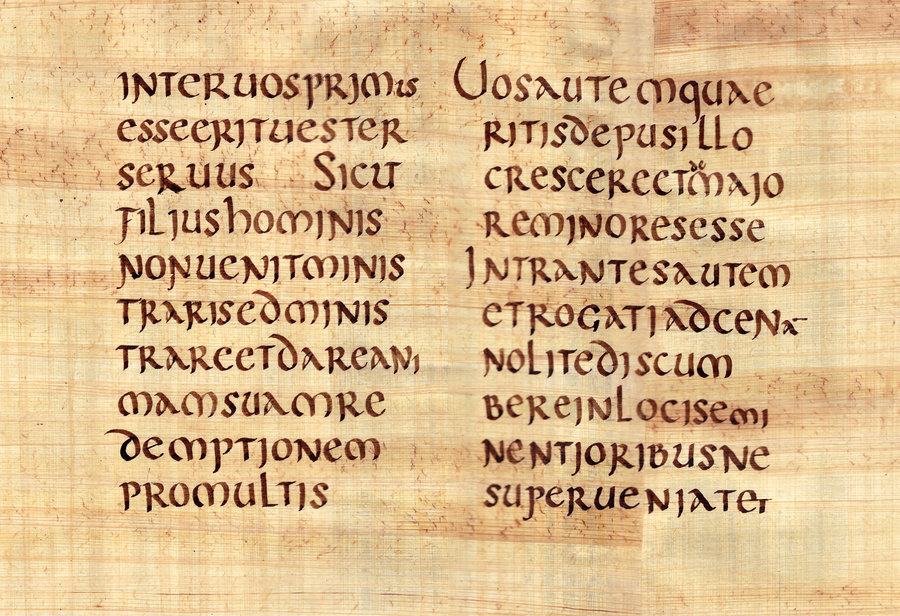 INTERUOSPRIMIS
ESSEERITUESTER
SERUUS SICUT
FILIUSHOMINIS
NONUENITMINIS
TRARISEDMINIS
TRARCETDAREANI
MAMSUAMRE
DEMPTIONEM
PROMULTIS
UOSAUTEMQUAE
RITISDEPUSILLO
CRESCERECTdeMAJO
REMINORESESSE
INTRANTESAUTEM
ETROGATIADCENA
NOLITEDISCUM
BEREINLOCISEMI
NENTIORIBUSNE
SUPERUENIATET